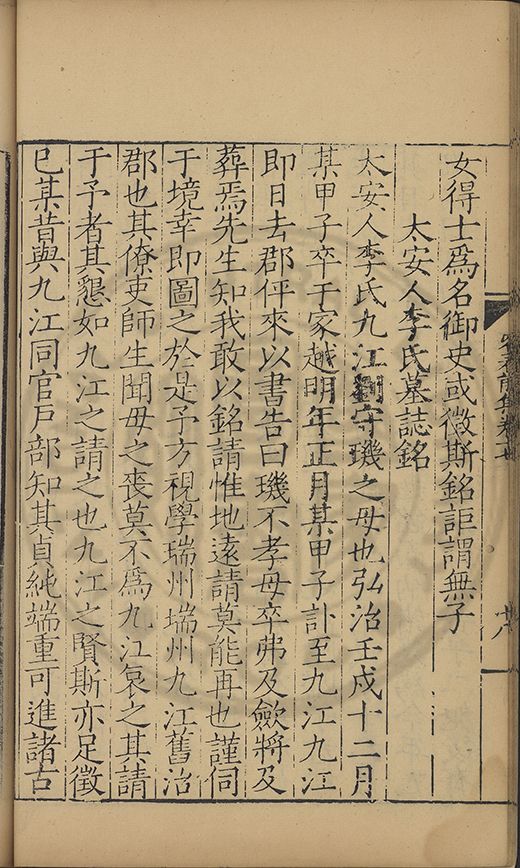 女得士爲名御史或徵斯銘詎謂無子
太安人李氏墓誌銘
太安人李氏九江劉守璣之母也弘治壬戌十二月
某甲子卒于家越明年正月某甲子訃至九江九江
即日去郡伻來以書告曰璣不孝母卒弗及斂將及
葬焉先生知我敢以銘請惟地遠請莫能再也謹伺
于境幸即圖之於是予方視學瑞州瑞州九江舊治
郡也其僚吏師生聞母之喪莫不爲九江哀之其請
于予者其懇如九江之請之也九江之賢斯亦足徵
已某昔與九江同官戶部知其貞純端重可進諸古